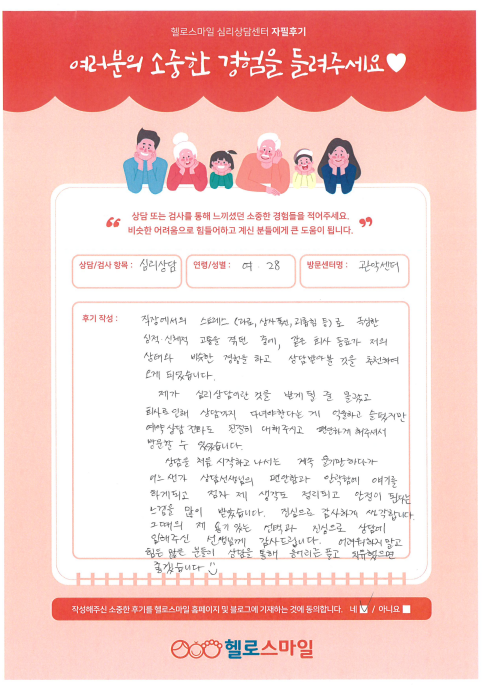 헬로스마일 심리상담센터 자필후기
여러분의 소중한 경험을 들려주세요
상담 또는 검사를 통해 느끼셨던 소중한 경험들을 적어주세요.
비슷한 어려움으로 힘들어하고 계신 분들에게 큰 도움이 됩니다.
상담/검사 항목 : 심리상담
연령/성별 : 여 . 28
방문센터명 : 관악센터
후기 작성 :
직장에서의 스트레스 (과로, 상사폭언, 괴롭힘 등)로 극심한
심적·신체적 고통을 겪던 중에, 같은 회사 동료가 저의
상태와 비슷한 경험을 하고 상담받아본 것을 추천하여
오게 되었습니다.
제가 심리상담이란 것을 받게 될 줄 몰랐고
회사로 인해 상담까지 다녀야한다는 게 억울하고 슬펐지만
예약상담 전화도 친절히 대해주시고 편안하게 해주셔서
방문할 수 있었습니다.
상담을 처음 시작하고 나서는 계속 울기만 하다가
어느샌가 상담선생님의 편안함과 안락함에 얘기를
하게되고 점차 제 생각도 정리되고 안정이 된다는
느낌을 많이 받았습니다. 진심으로 감사하게 생각합니다.
그때의 제 용기 있는 선택과 진심으로 상담에
임해주신 선생님께 감사드립니다. 어려워하지 말고
힘든 많은 분들이 상담을 통해 응어리를 풀고 치유했으면
좋겠습니다
작성해주신 소중한 후기를 헬로스마일 홈페이지 및 블로그에 기재하는 것에 동의합니다. 네 / 아니요
헬로스마일